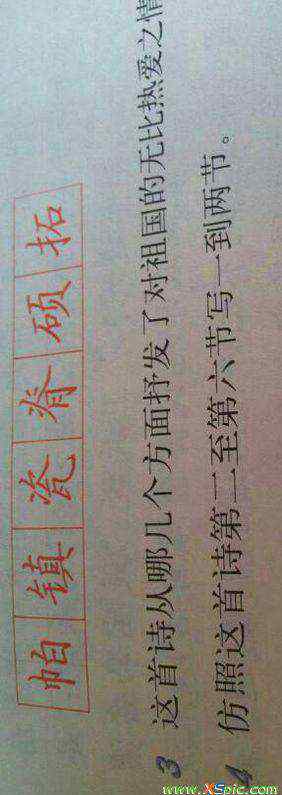 帕镇瓷脊硕拓
3 这首诗从哪几个方面抒发了对祖国的无比热爱之情
4 仿照这首诗第二至第六节写一到两节。
www.XSpic.com